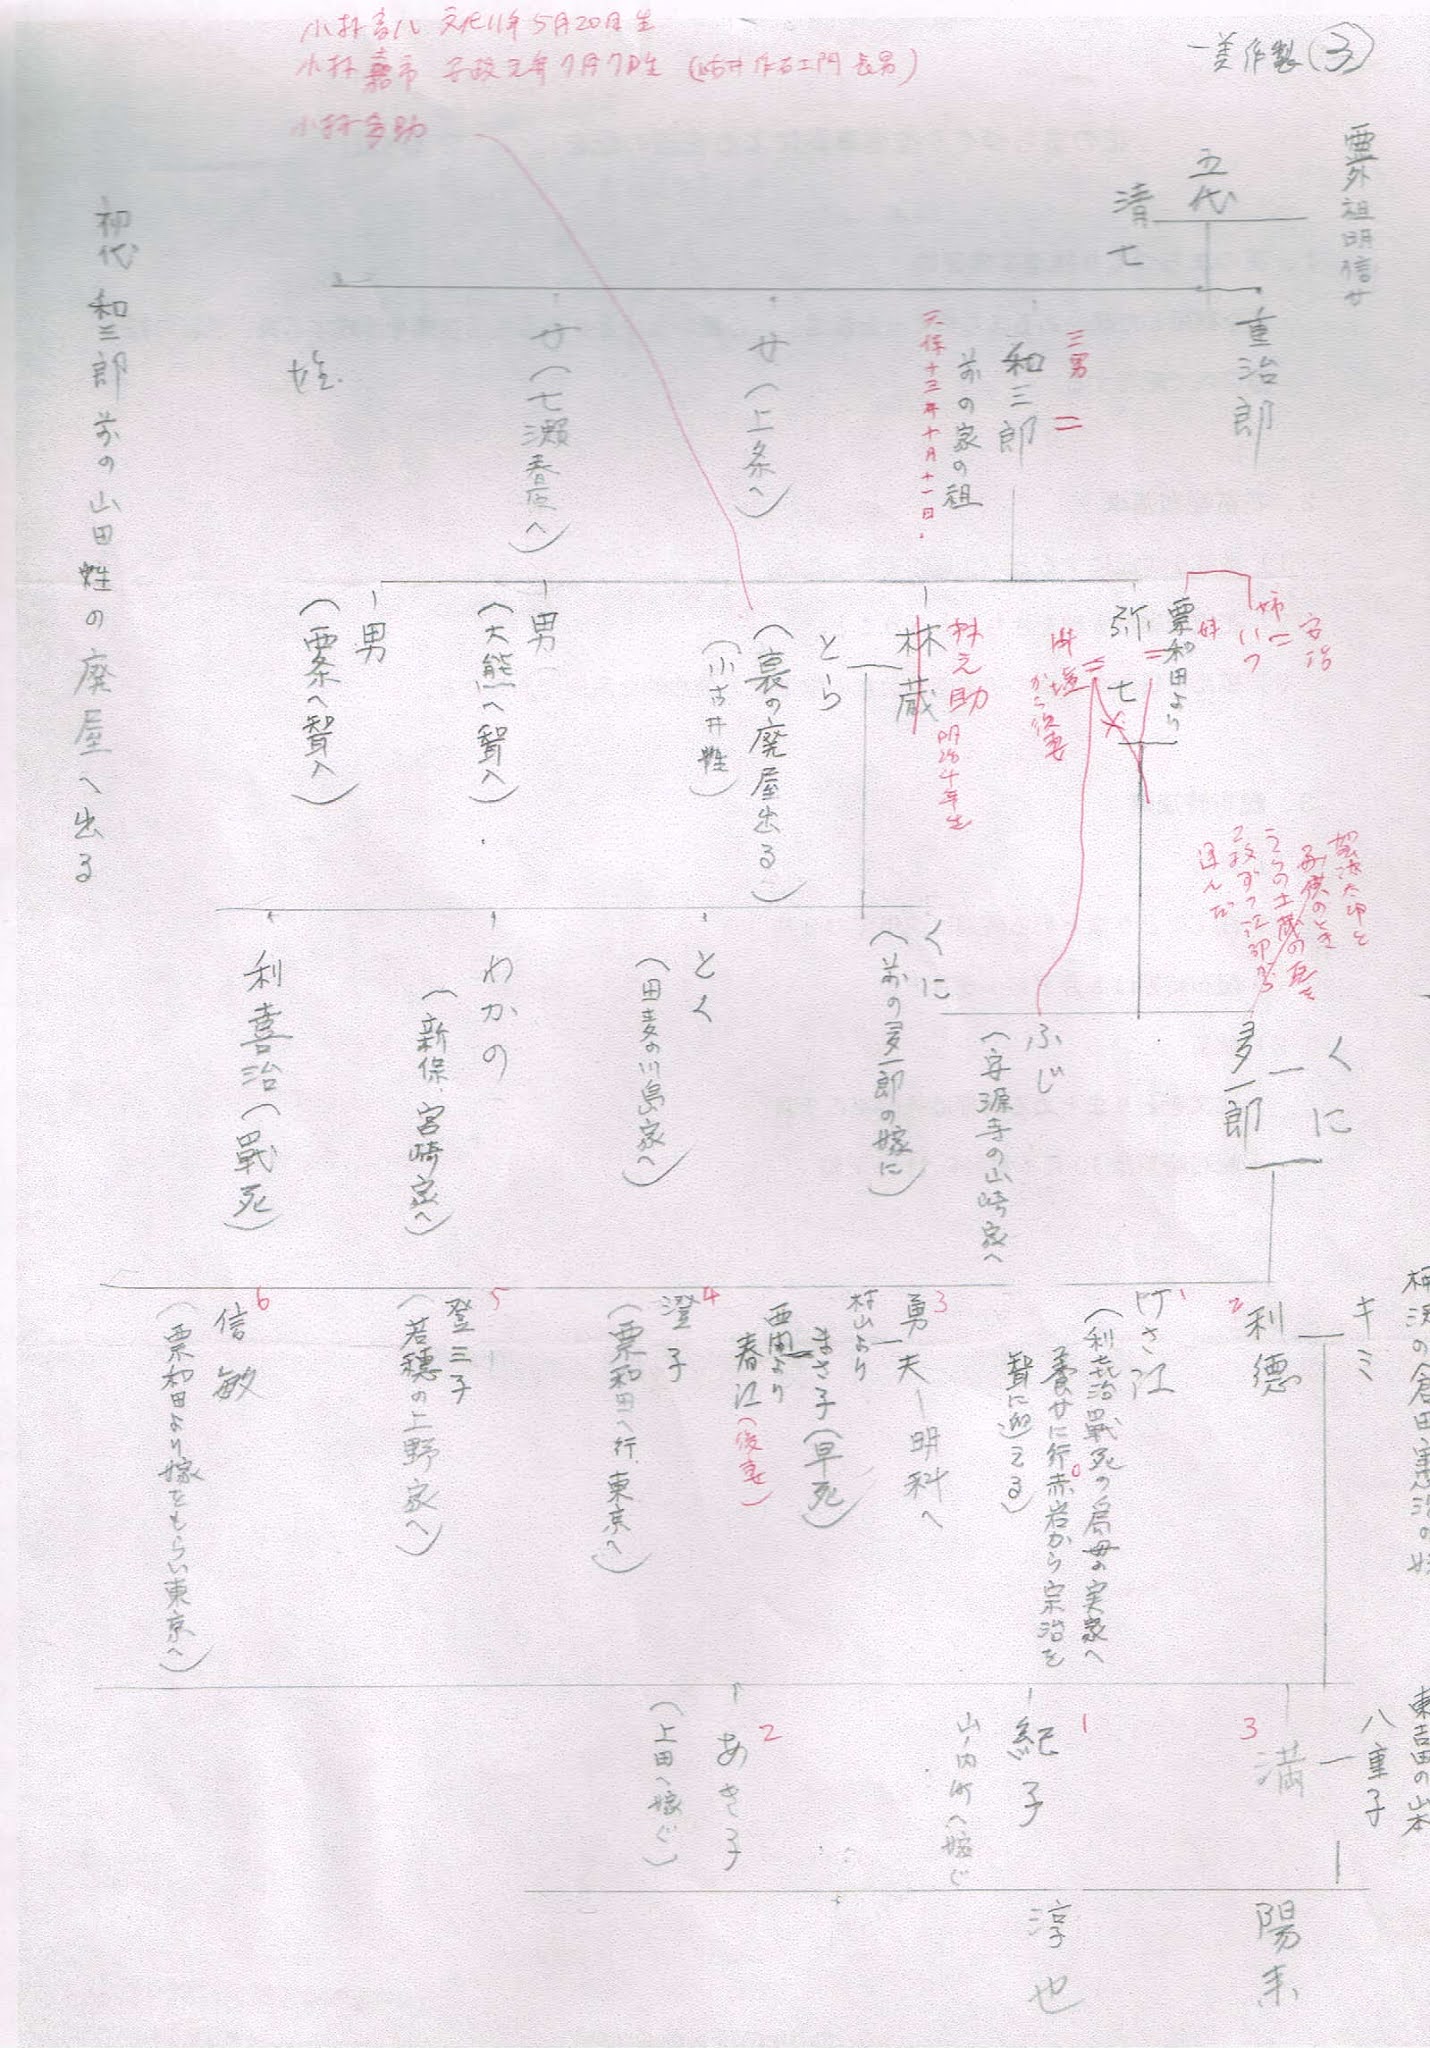 小林 文化11年5月20日生
小林嘉市 安政元年7月7日生 (作右エ門長男)
小林多助
一美作製 ③
要外祖明信女
五代
清七
重治郎
三男
和三郎
前の家の祖
天保十三年十月十一日
女(上条へ)
女(七瀬春原へ)
姓
初代 和三郎 前の山田姓の廃屋へ出る
姉いつ
妹
栗和田より
弥七
から後妻
林之助 明治十年生
林蔵
とら
(裏の廃屋出る)
(小古井姓)
男
(大熊へ聟へ)
男
(栗条へ聟入)
子供のとき
うらの土蔵の
運んだ
くに
多一郎
ふじ
(安源寺の山崎家へ
くに
(前の多一郎の嫁に)
とく
(田麦の川島家へ)
わかの
(新保、宮崎家へ)
利喜治(戰死)
キミ
2
利德
1
けさ江
(利喜治戰死の為母の実家へ
養女に行。赤岩から宗治を
聟に迎える)
3
勇夫ー明科へ
村山より
まさ子(早死)
西間より
春江(後妻)
4
澄子
(栗和田へ行、東京へ)
5
登三子
(若穂の上野家へ)
6
信敏
(栗和田より嫁をもらい東京へ)
東吉田の山本
八重子
3
満
1
紀子
山ノ内町へ嫁ぐ
2
あき子
(上田へ嫁ぐ)
陽来
淳也